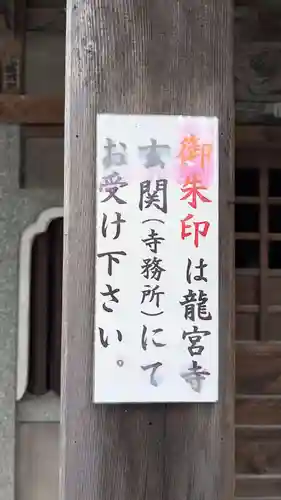 御朱印は龍宮寺
玄関(寺務所)にて
お受け下さい。